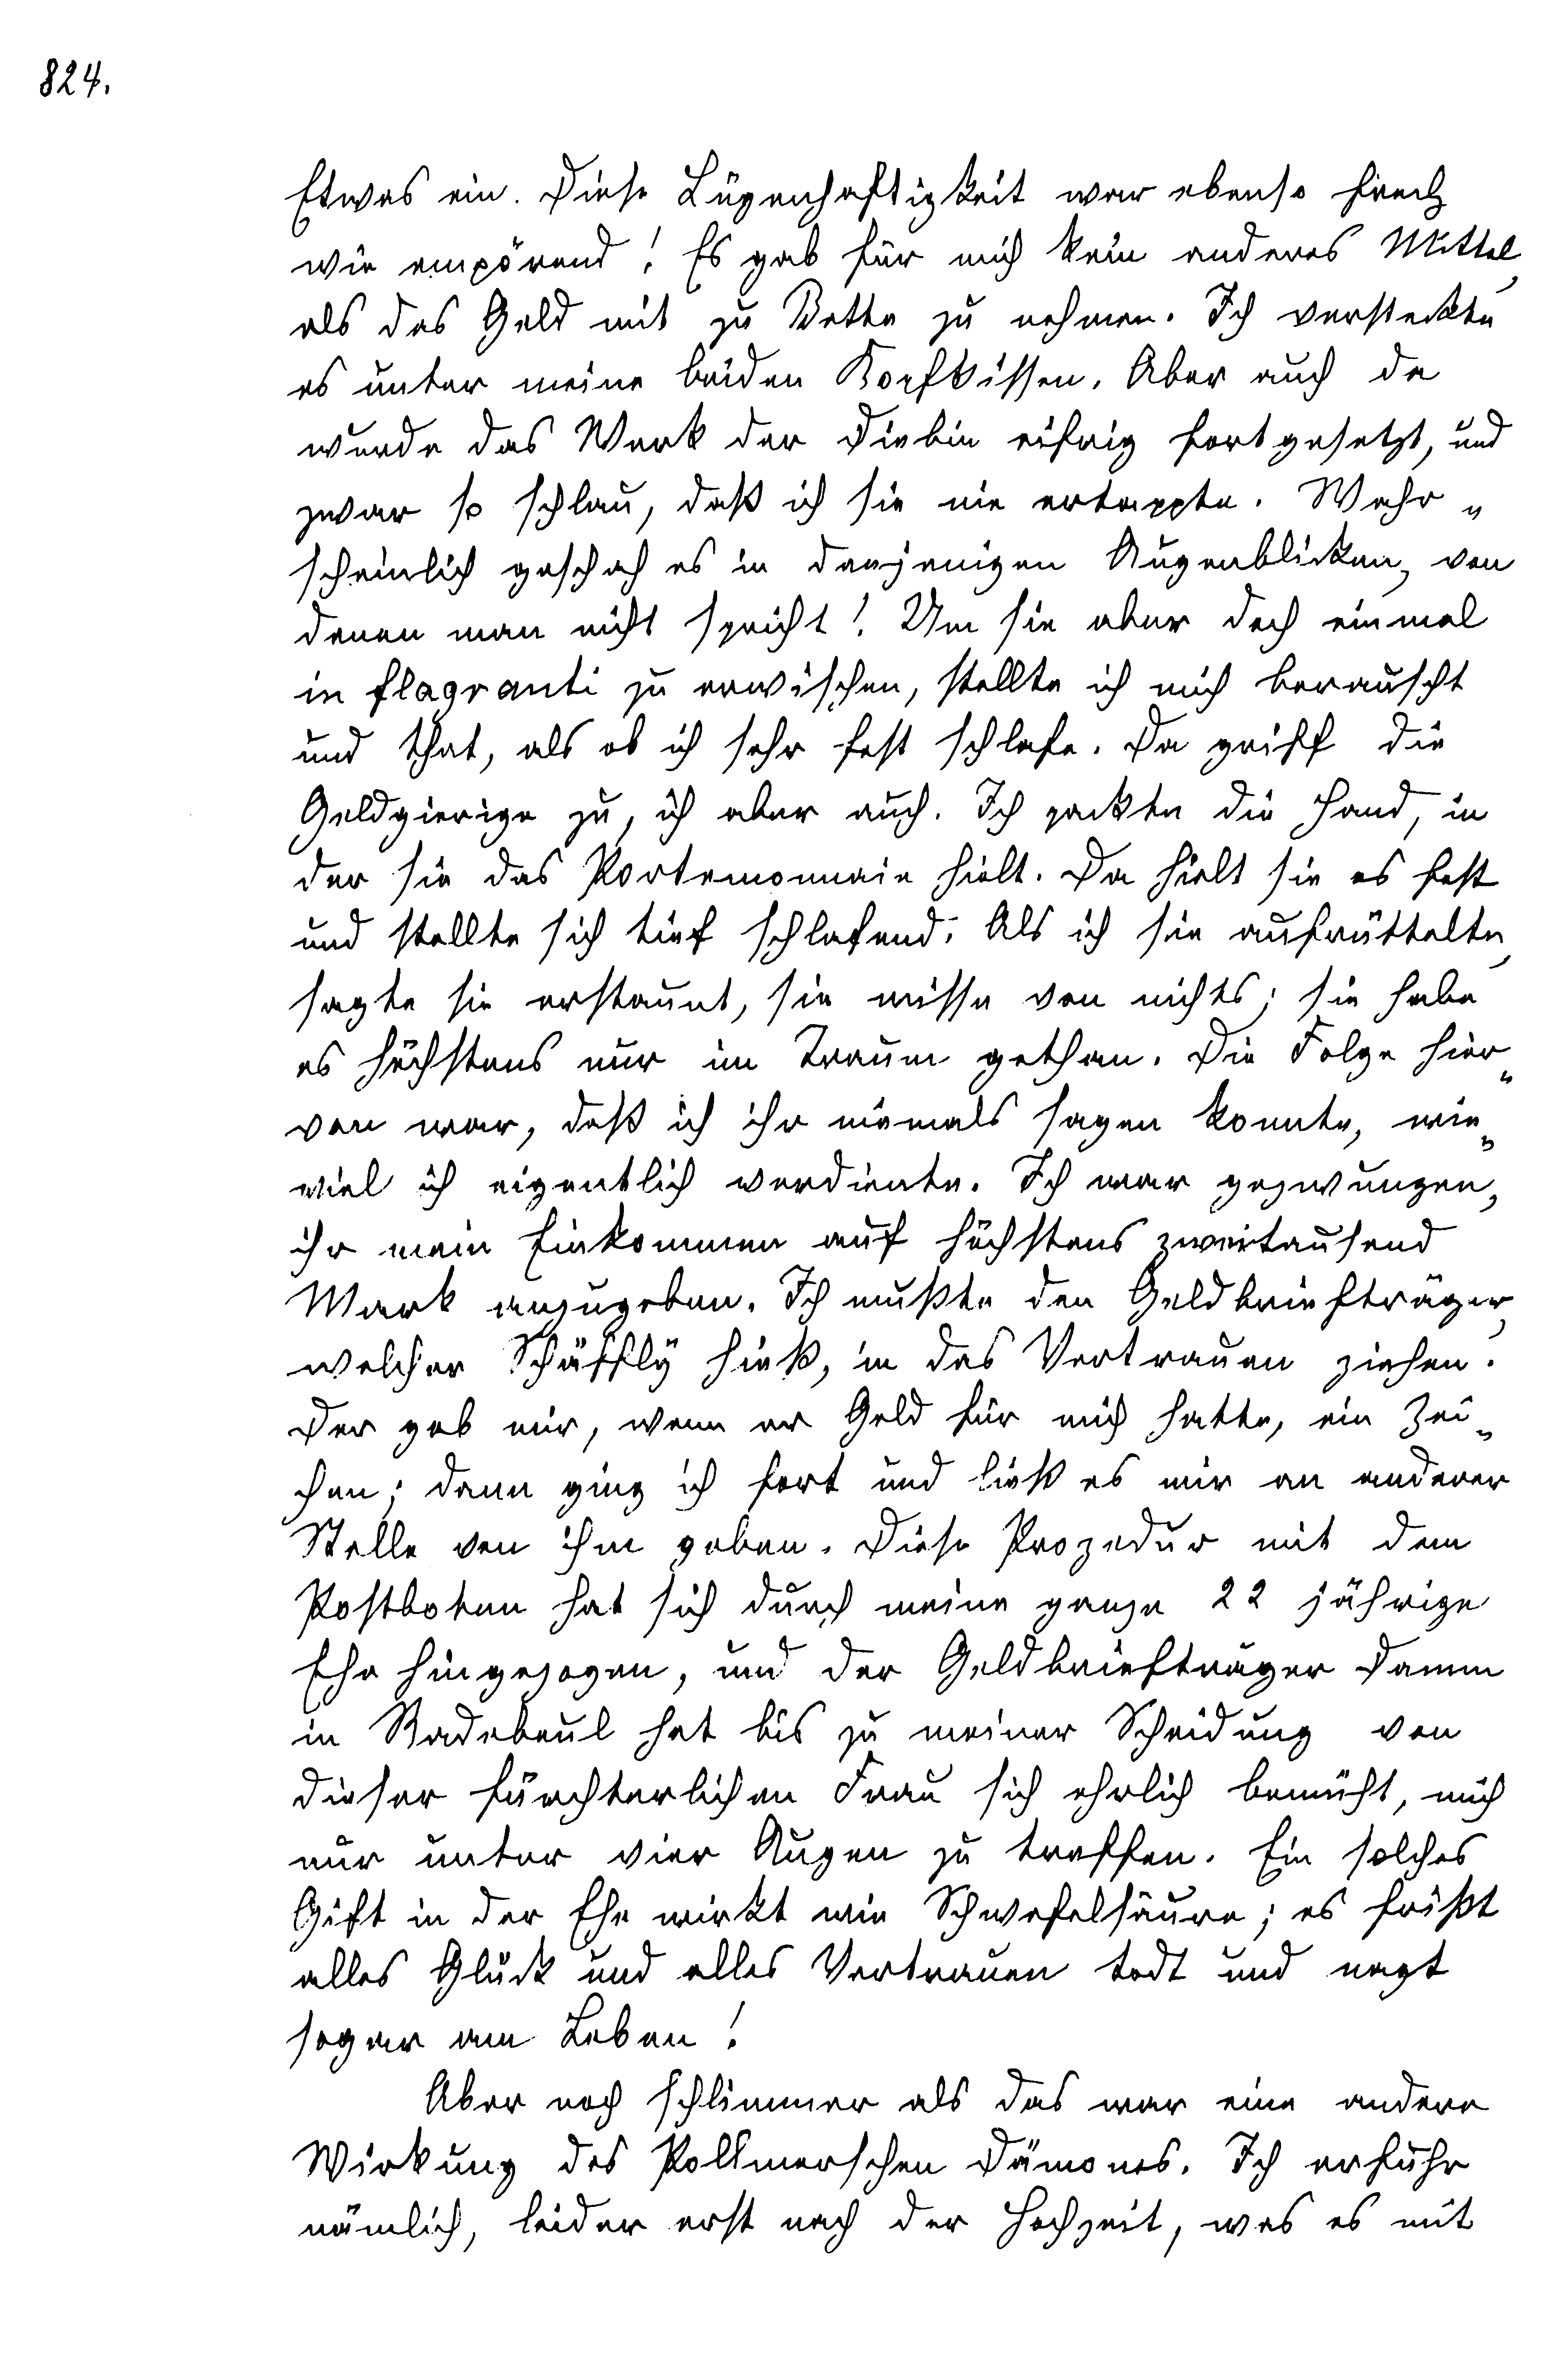 824.
Etwas ein. Diese Lügenhaftigkeit war ebenso frech
wie empörend! Es gab für mich kein anderes Mittel,
als das Geld mit zu Bette zu nehmen. Ich versteckte
es unter meine beiden Kopfkissen. Aber auch da
wurde das Werk der Diebin eifrig fortgesetzt, und
zwar so schlau, daß ich sie nie ertappte. Wahr„
scheinlich geschah es in denjenigen Augenblicken, von
denen man nicht spricht! Um sie aber doch einmal
in flagranti zu erwischen, stellte ich mich berauscht
und that, als ob ich sehr fest schlafe. Da griff die
Geldgierige zu, ich aber auch. Ich packte die Hand, in
der sie das Portemonnaie hielt. Da hielt sie es fest
und stellte sich tief schlafend. Als ich sie aufrüttelte,
sagte sie erstaunt, sie wisse von nichts; sie habe
es höchstens nur im Traum gethan. Die Folge hier„
von war, daß ich ihr niemals sagen konnte, wie„
viel ich eigentlich verdiente. Ich war gezwungen,
ihr mein Einkommen auf höchstens zweitausend
Mark anzugeben. Ich mußte den Geldbriefträger,
welcher Schäffly hieß, in das Vertrauen ziehen.
Der gab mir, wenn er Geld für mich hatte, ein Zei„
chen; dann ging ich fort und ließ es mir an anderer
Stelle von ihm geben. Diese Prozedur mit dem
Postboten hat sich durch meine ganze 22 jährige
Ehe hingezogen, und der Geldbriefträger Damm
in Radebeul hat bis zu meiner Scheidung von
dieser fürchterlichen Frau sich ehrlich bemüht, mich
nur unter vier Augen zu treffen. Ein solches
Gift in der Ehe wirkt wie Schwefelsäure; es frißt
alles Glück und alles Vertrauen todt und nagt
sogar am Leben!
Aber noch schlimmer als das war eine andere
Wirkung des Pollmerschen Dämones. Ich erfuhr
nämlich, leider erst nach der Hochzeit, was es mit